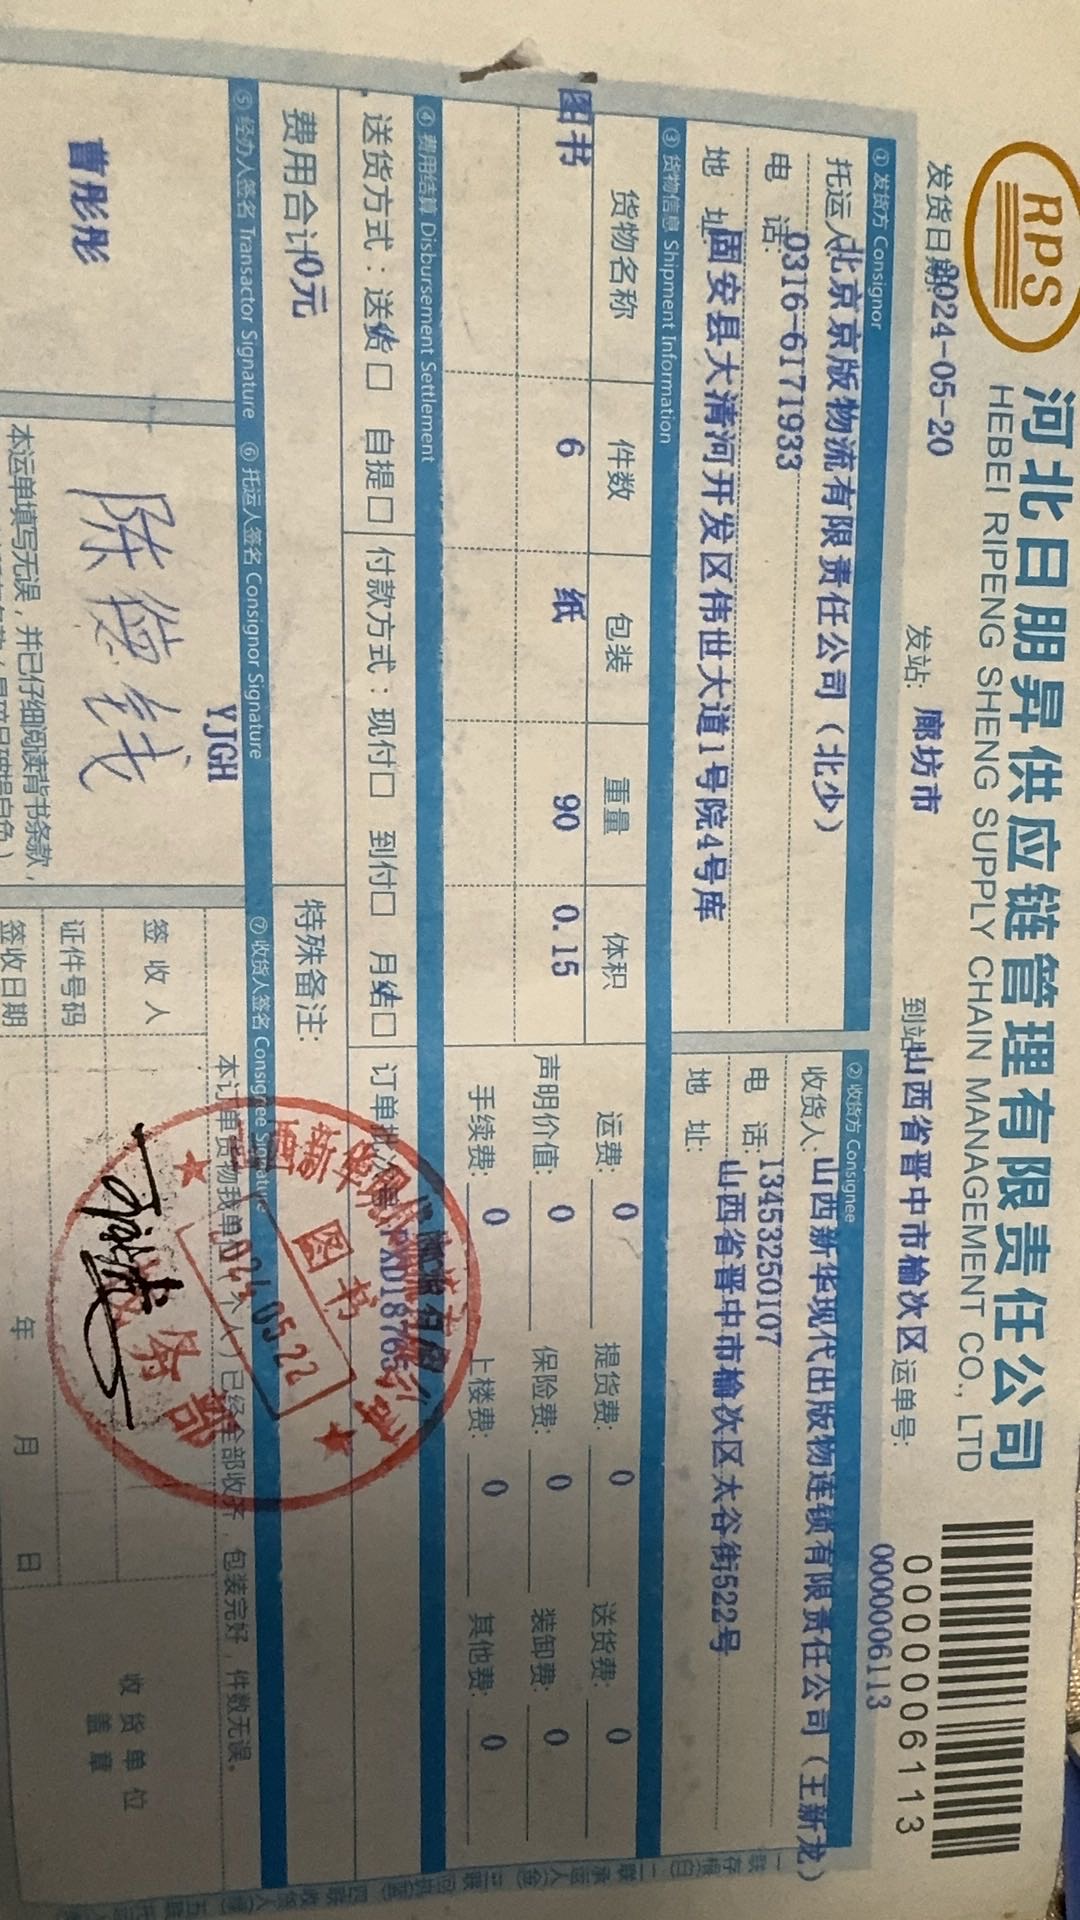 RPS
河北日朋昇供应链管理有限责任公司
HEBEI RIPENG SHENG SUPPLY CHAIN MANAGEMENT CO., LTD
0000006113
发货日期: 2024-05-20 发站: 廊坊市 到站: 山西省晋中市榆次区 运单号: 0000006113
① 发货方 Consignor
托运人: 北京京版物流有限责任公司（北少）
电 话: 0316-6171933
地 址: 固安县大清河开发区伟世大道1号院4号库
② 收货方 Consignee
收货人: 山西新华现代出版物连锁有限责任公司（王新龙）
电 话: 13453250107
地 址: 山西省晋中市榆次区太谷街522号
③ 货物信息 Shipment Information
货物名称 件数 包装 重量 体积
图书 6 纸 90 0.15
运费: 0 提货费: 0 送货费: 0
声明价值: 0 保险费: 0 装卸费: 0
手续费: 0 上楼费: 0 其他费: 0
④ 费用结算 Disbursement Settlement
送货方式：送货□ 自提□ 付款方式：现付□ 到付□ 月结□ 订单批次号:
费用合计0元 特殊备注:
⑤ 经办人签名 Transactor Signature ⑥ 托运人签名 Consignor Signature ⑦ 收货人签名 Consignee Signature
曹彤彤
YJGH
本运单填写无误，并已仔细阅读背书条款，
本订单货物我单位（个人）已经全部收齐，包装完好，件数无误。
签 收 人
证件号码
签收日期 年 月 日
收货单位
盖 章
图书
2024.05.22